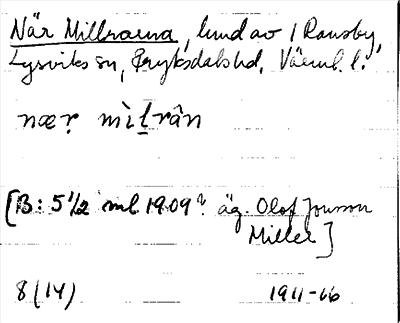 När Millraena, lund av 1 Ransby,
Lysviks sn, Fryksdals hd, Värml. l.
næṛ mìḻrân
[B: 5 1/2 ml 1909? äg. Olof Jonsson
Miller]
8(14) 1911-66